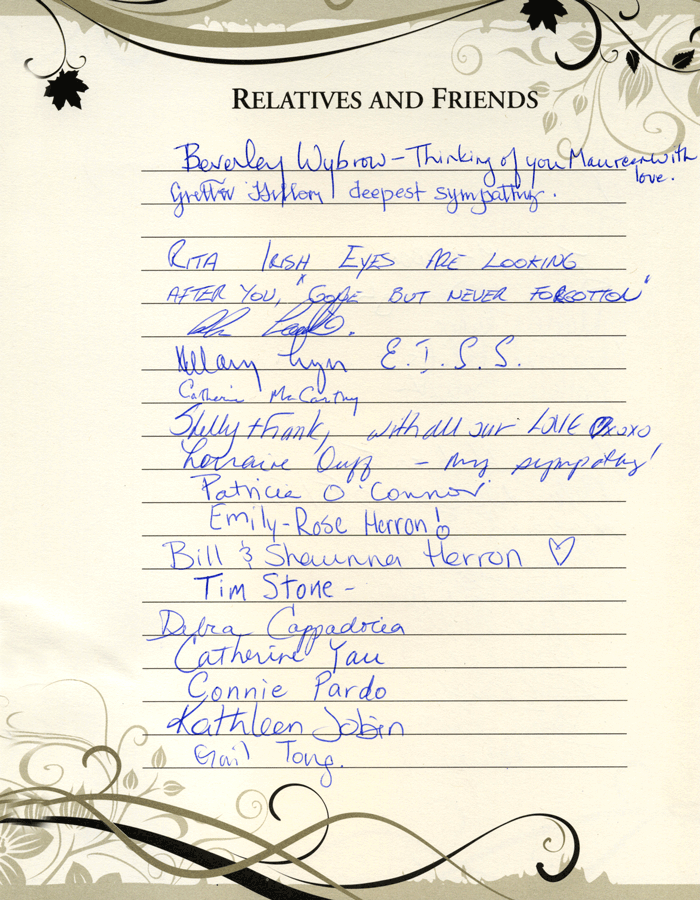 RELATIVES AND FRIENDS
Beverley Wybrow – Thinking of you Maureen with
love.
deepest sympathy.
RITA IRISH EYES ARE LOOKING
AFTER YOU, "GONE BUT NEVER FORGOTTON"
Hillary Lyn E.I.S.S.
Catherine MacCarthy
Shelly Frank, with all our LOVE OXOXO
Lorraine Duff – my sympathy!
Patricia O'Connor
Emily-Rose Herron!
Bill & Shawnna Herron ♡
Tim Stone –
Debra Cappadocia
Catherine Yau
Connie Pardo
Kathleen Jobin
Gail Tong.